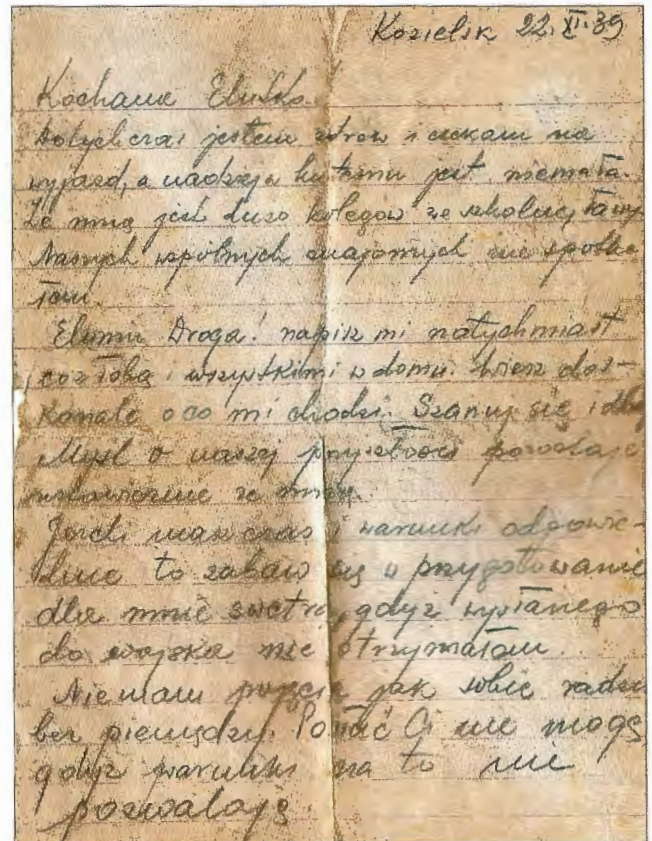 Kozielsk 22.XI.39
Kochana Elusko
Dotychczas jestem zdrów i czekam na
wyjazd, a nadzieja ku temu jest niemała.
Ze mną jest dużo kolegów ze szkolnej ławy
Naszych wspólnych znajomych nie spotka-
łem.
Elumu Droga! napisz mi natychmiast
co z Tobą i wszystkimi w domu. Wiesz dos-
konale o co mi chodzi. Szanuj się i dbaj
Myśl o naszej przyszłości pozostaje
ze mną.
Jeżeli masz czas i warunki odpowie-
dnie to zabaw się w przygotowanie
dla mnie swetra, gdyż wysłanego
do wojska nie otrzymałem.
Nie mam pojęcia jak sobie radzisz
bez pieniędzy. Posłać Ci nie mogę
gdyż warunki na to nie
pozwalają.